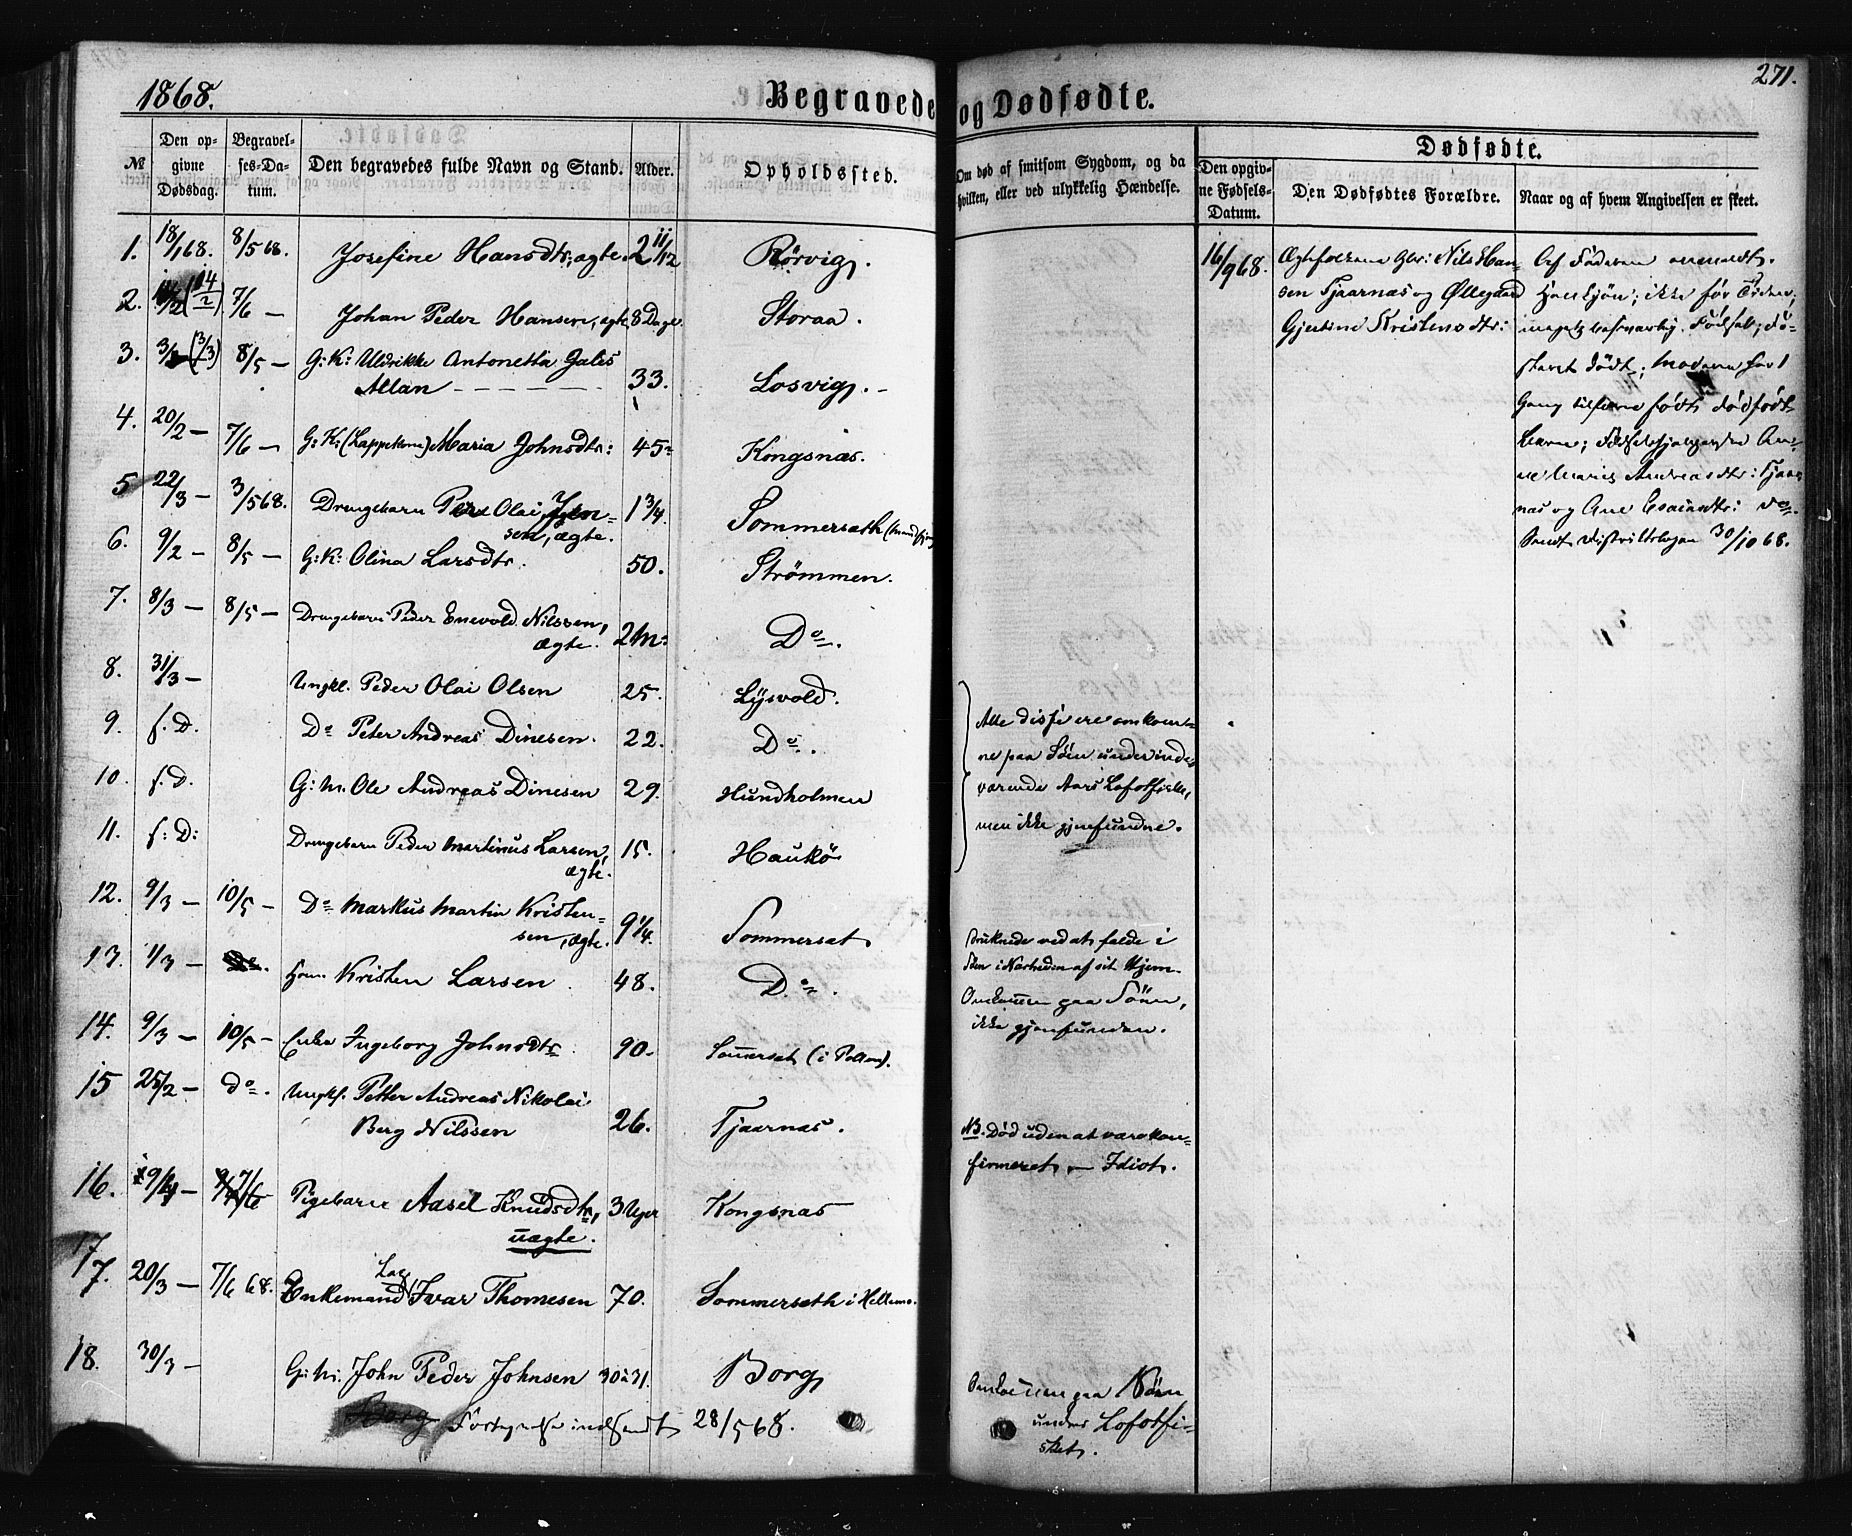 1868.
Begravede og Dødfødte.
271.
№
Den opgivne Dødsdag.
Begravelses-Datum.
Den begravedes fulde Navn og Stand.
Alder.
Opholdssted.
Om død af smitsom Sygdom, og da hvilken, eller ved ulykkelig Hændelse.
Dødfødte.
Den opgivne Fødsels-Datum.
Den Dødfødtes Forældre.
Naar og af hvem Angivelsen er skeet.
1. 18/1 68. 8/5 68. Josefine Hansdtr, ægte. 2 11/12 Rørvig.
2. (14/2) 7/6 — Johan Peder Hansen, ægte 8 Dage. Storaa.
3. (3/3) 8/5 — G: K: Uldrikke Antonetta Jales
Allan — 33. Losvig. -
4. 20/2 — 7/6 — G: K: (Lappekone) Maria Johnsdtr: 45 Kongsnæs.
5 22/3 — 3/5 68. Drengebarn Peder Olai Jen=
sen, ægte. 1 3/4. Sommerseth
6. 9/2 — 8/5 — G: K: Olina Larsdtr. 50. Strømmen.
7. 8/3 — 8/5 — Drengebarn Peder Enevold Nilssen,
ægte. 2 M: Do.
8. 31/3 — Ungkl. Peder Olai Olsen 25. Lysvold.
9. f. D. Do Peter Andreas Dinesen. 22. Do.
10. f. D. G: M. Ole Andreas Dinesen 29. Hundholmen
11. f: D: Drengebarn Peder Martinus Larsen,
ægte. 15. Haukö
12. 9/3 — 10/5 — Do Markus Martin Kristen=
sen, ægte. 9 1/4. Sommerset
13. 1/3 — Hom. Kristen Larsen 48. Do.
14. 9/3 — 10/5 — Enke Ingeborg Johnsdtr 90. Somerset (i Pollen).
15 25/2 — do. Ungk. Petter Andreas Nikolai
Berg Nilssen 26. Tjaarnæs.
16. 9/4 — 7/6 Pigebarn Aasel Knudsdtr,
uægte. 3 Uger Kongsnæs
17
17. 20/3 — 7/6 68. Enkemand Lap Ivar Thomesen 70. Sommerseth i Hellemo.
18. 30/3 — G: M. John Peder Johnsen 30 à 31. Borg
Borg Fortegnelse indsendt 28/5 68.
Alle disse ere omkom=
ne paa Søen under inde=
værende Aars Lofotfiske,
men ikke gjenfundne.
Druknede ved at falde i
Søen i Nærheden af sit Hjem.
Omkommen paa Søen,
ikke gjenfunden.
NB. Død uden at være kon=
firmeret — Idiot.
Omkommen paa Søen
under Lofotfi=
sket.
16/9 68. Ægtefolkene Gbr: Nils Han=
sen Tjaarnæs og Øllegaard
Gjertine Kristensdtr:
Af Faderen anmeldt.
Hankjøn; ikke før Tiden;
Fødsel; Fo=
steret dødt; Moderen har 1
Gang tilforn født dødfødt
Barn; Fødselshjælperske An=
ne Marie Andreasdtr: Tjaar
næs og Ane Esaiasdtr: do.
Sendt Distriktslægen 30/10 68.